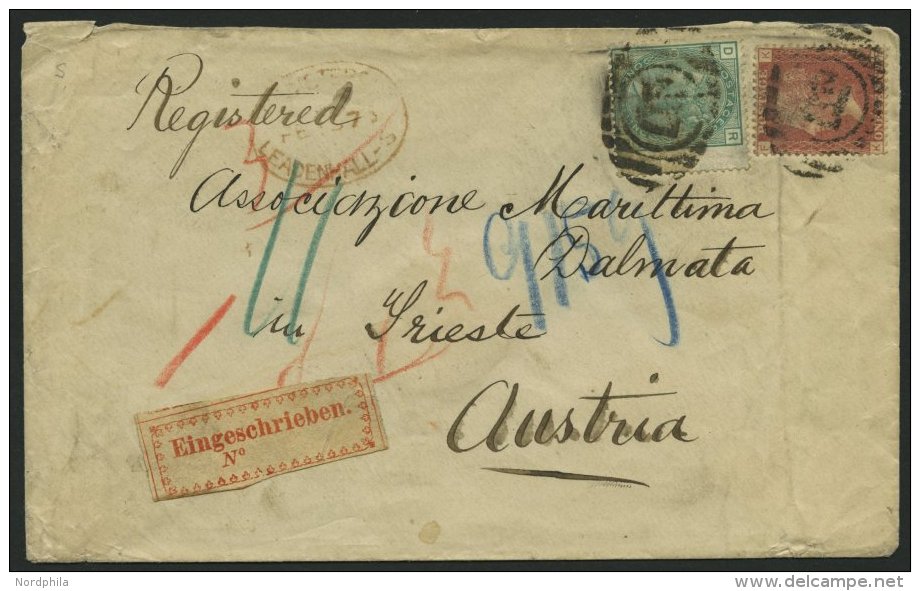 Registered
LEADENHALL-S
D
POSTAGE
R
Associazione Marittima
Dalmata
in Trieste
Austria
Eingeschrieben.
No
Nordphila
delcampe.net